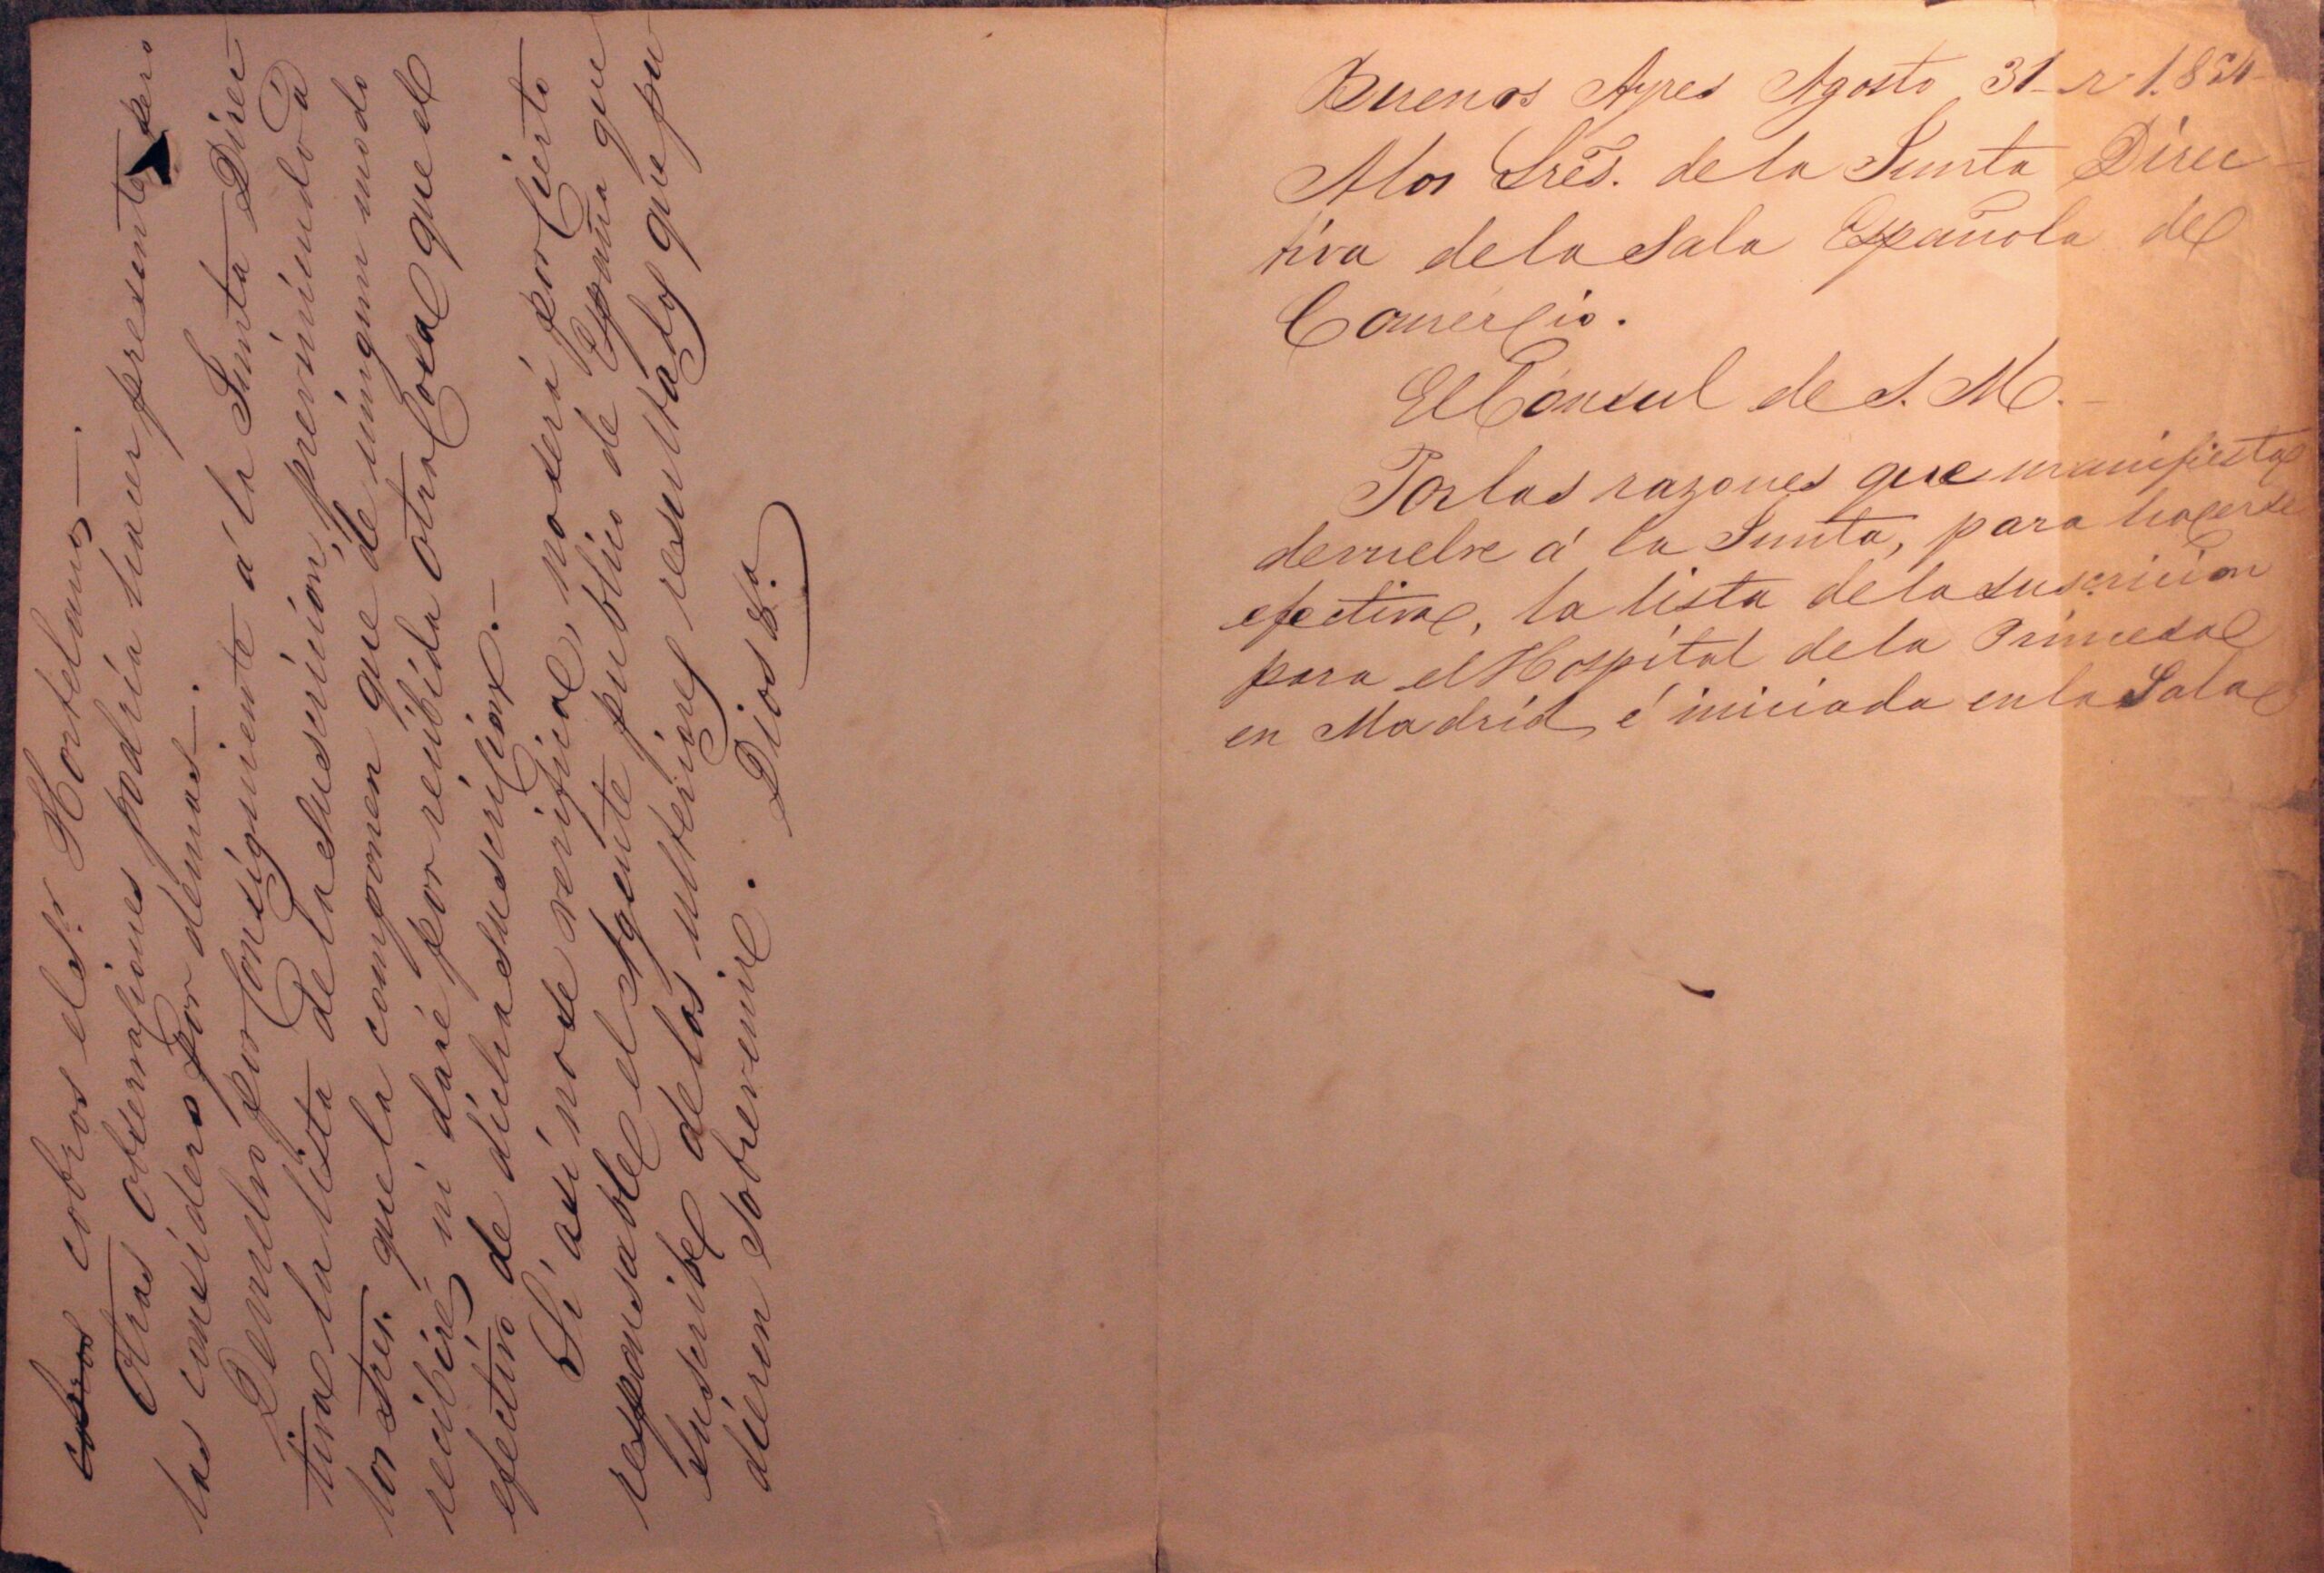 cobros cobros el Sr. Hortelano—.
Otras observaciones podria hacer presente pero
las considero por demas—.
Devuelvo por consiguiente á la Junta Direc
tiva la lista de la suscricion, previniendo á
los Sres. que la componen que de ningun modo
recibiré ni daré por recibida otra cosa que el
efectivo de dicha suscricion.—
Si asi no se verifica, no será por cierto
responsable el Agente publico de España que
suscribe de los ulteriores resultados que pu
dieren sobrevenir. Dios &.a
Buenos Ayres Agosto 31
A los Sres. de la Junta Direc
tiva de la Sala Española de
Comercio.
El Cónsul de S. M.—
Por las razones que manifiesta
devuelve á la Junta, para hacerse
efectiva, la lista de la suscricion
para el Hospital de la Princesa
en Madrid é iniciada en la Sala